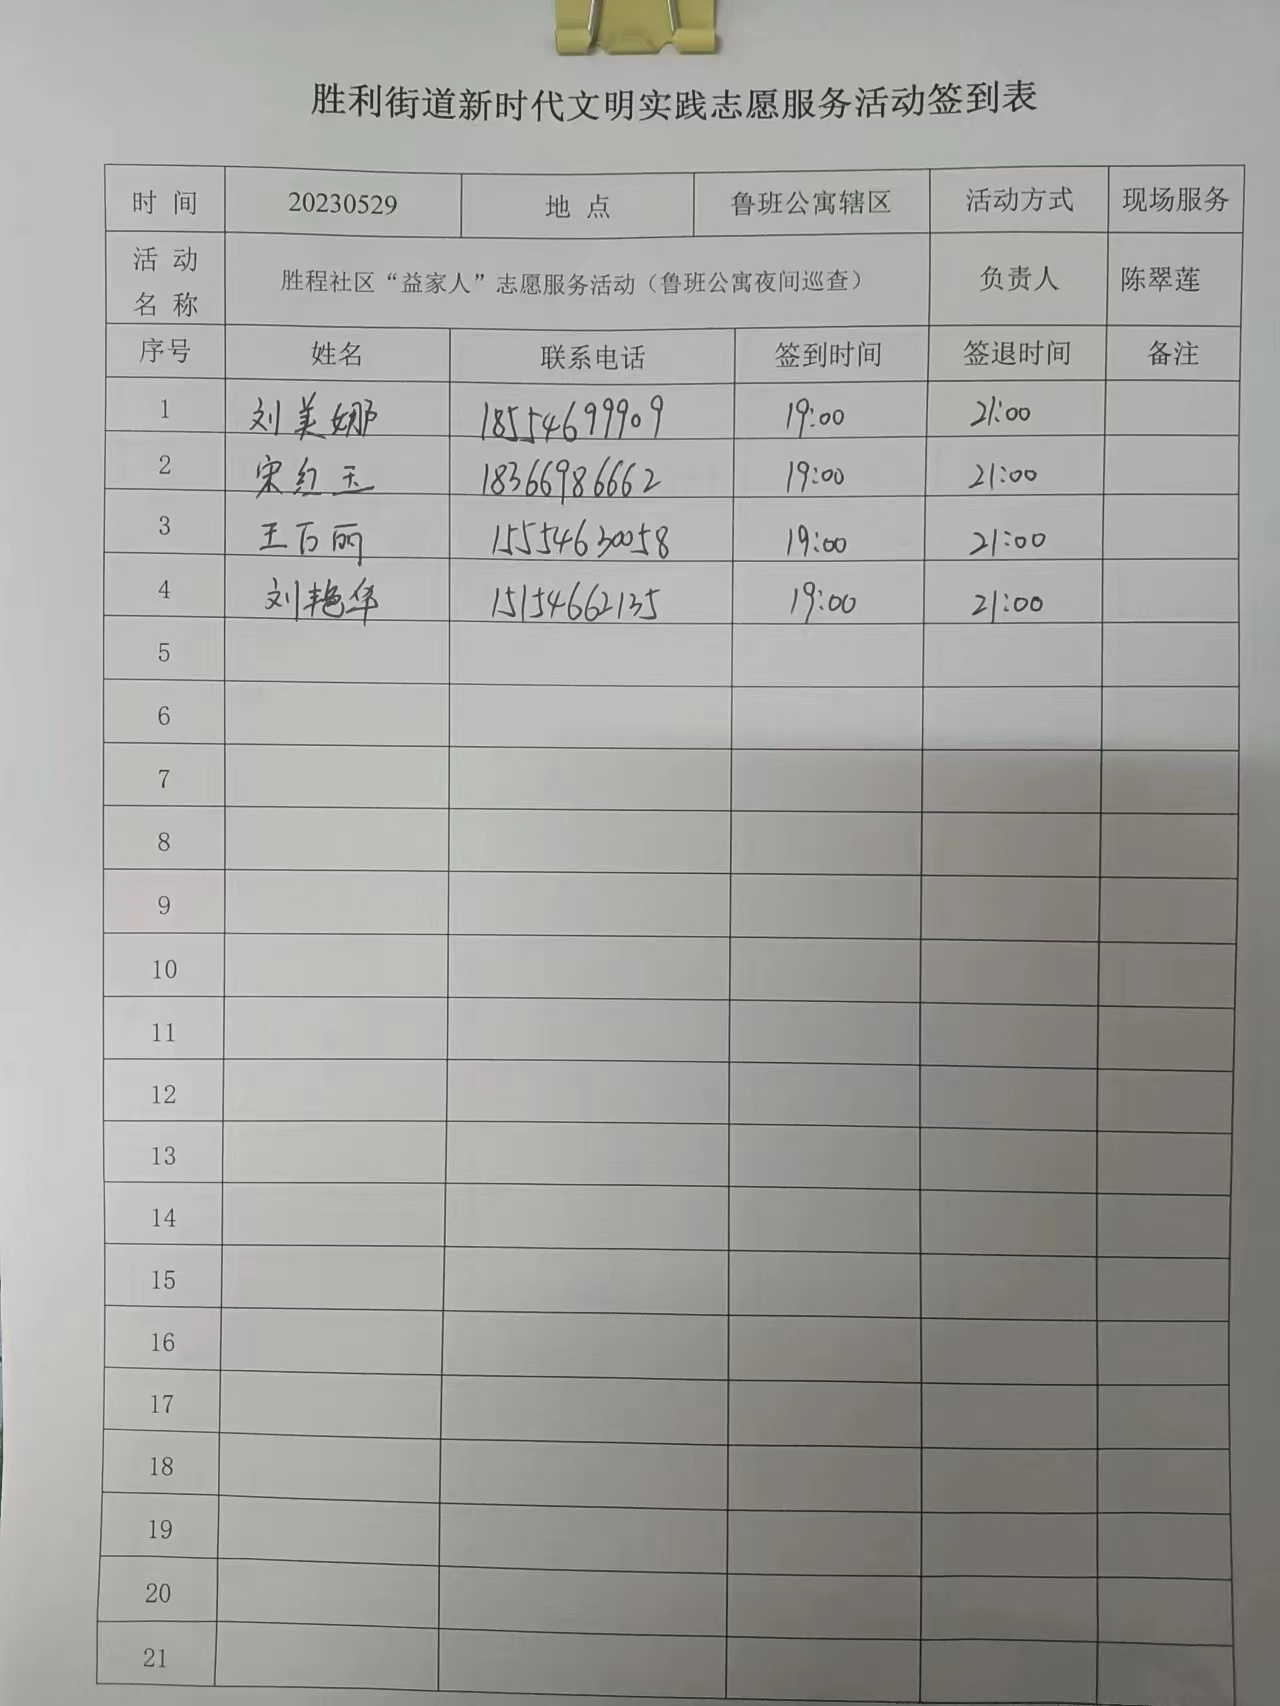 胜利街道新时代文明实践志愿服务活动签到表
时 间 20230529 地 点 鲁班公寓辖区 活动方式 现场服务
活 动 名 称 胜程社区“益家人”志愿服务活动（鲁班公寓夜间巡查） 负责人 陈翠莲
序号 姓名 联系电话 签到时间 签退时间 备注
1 刘美娜 18554699909 19:00 21:00
2 宋红玉 18366986662 19:00 21:00
3 王百丽 15554630058 19:00 21:00
4 刘艳华 15154662135 19:00 21:00
5
6
7
8
9
10
11
12
13
14
15
16
17
18
19
20
21